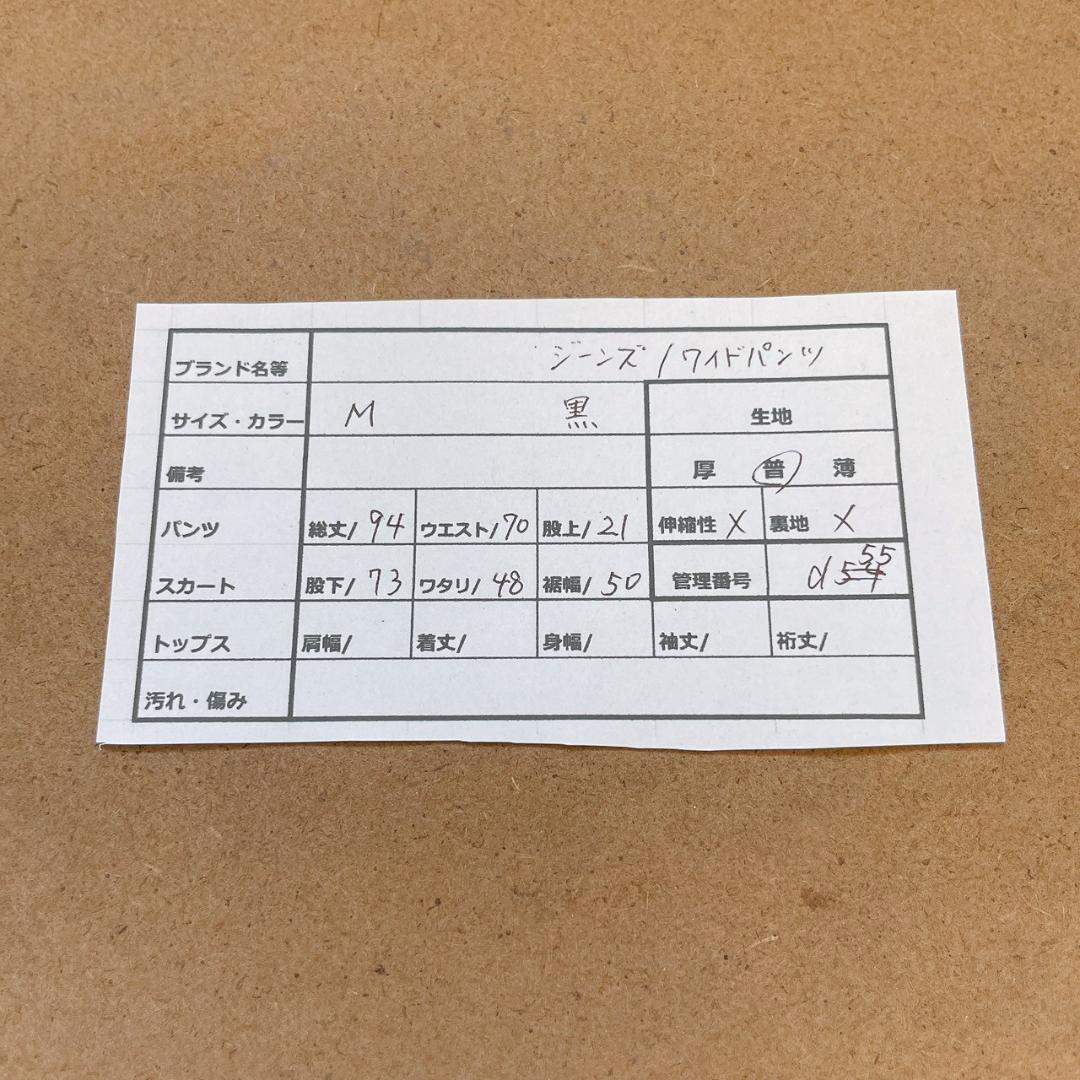 ブランド名等 ジーンズ / ワイドパンツ
サイズ・カラー M 黒 生地
備考 厚 普 薄
パンツ 総丈/ 94 ウエスト/ 70 股上/ 21 伸縮性 X 裏地 X
スカート 股下/ 73 ワタリ/ 48 裾幅/ 50 管理番号 d54 55
トップス 肩幅/ 着丈/ 身幅/ 袖丈/ 裄丈/
汚れ・傷み